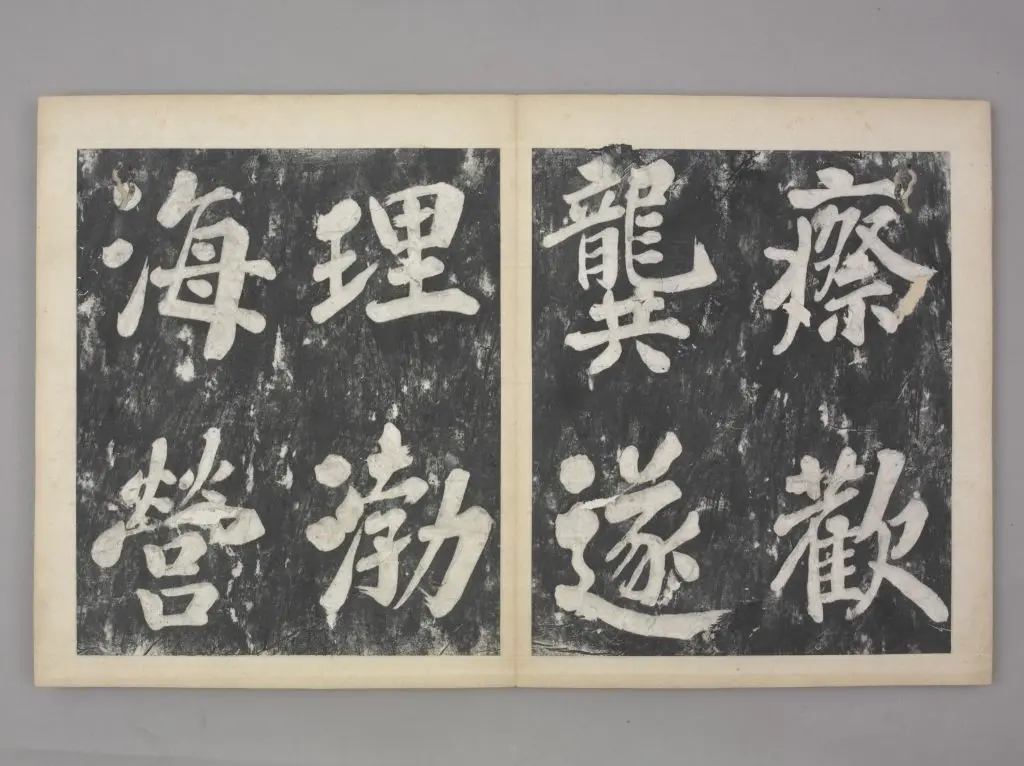 瘵歡
龔遂
理渤
海營